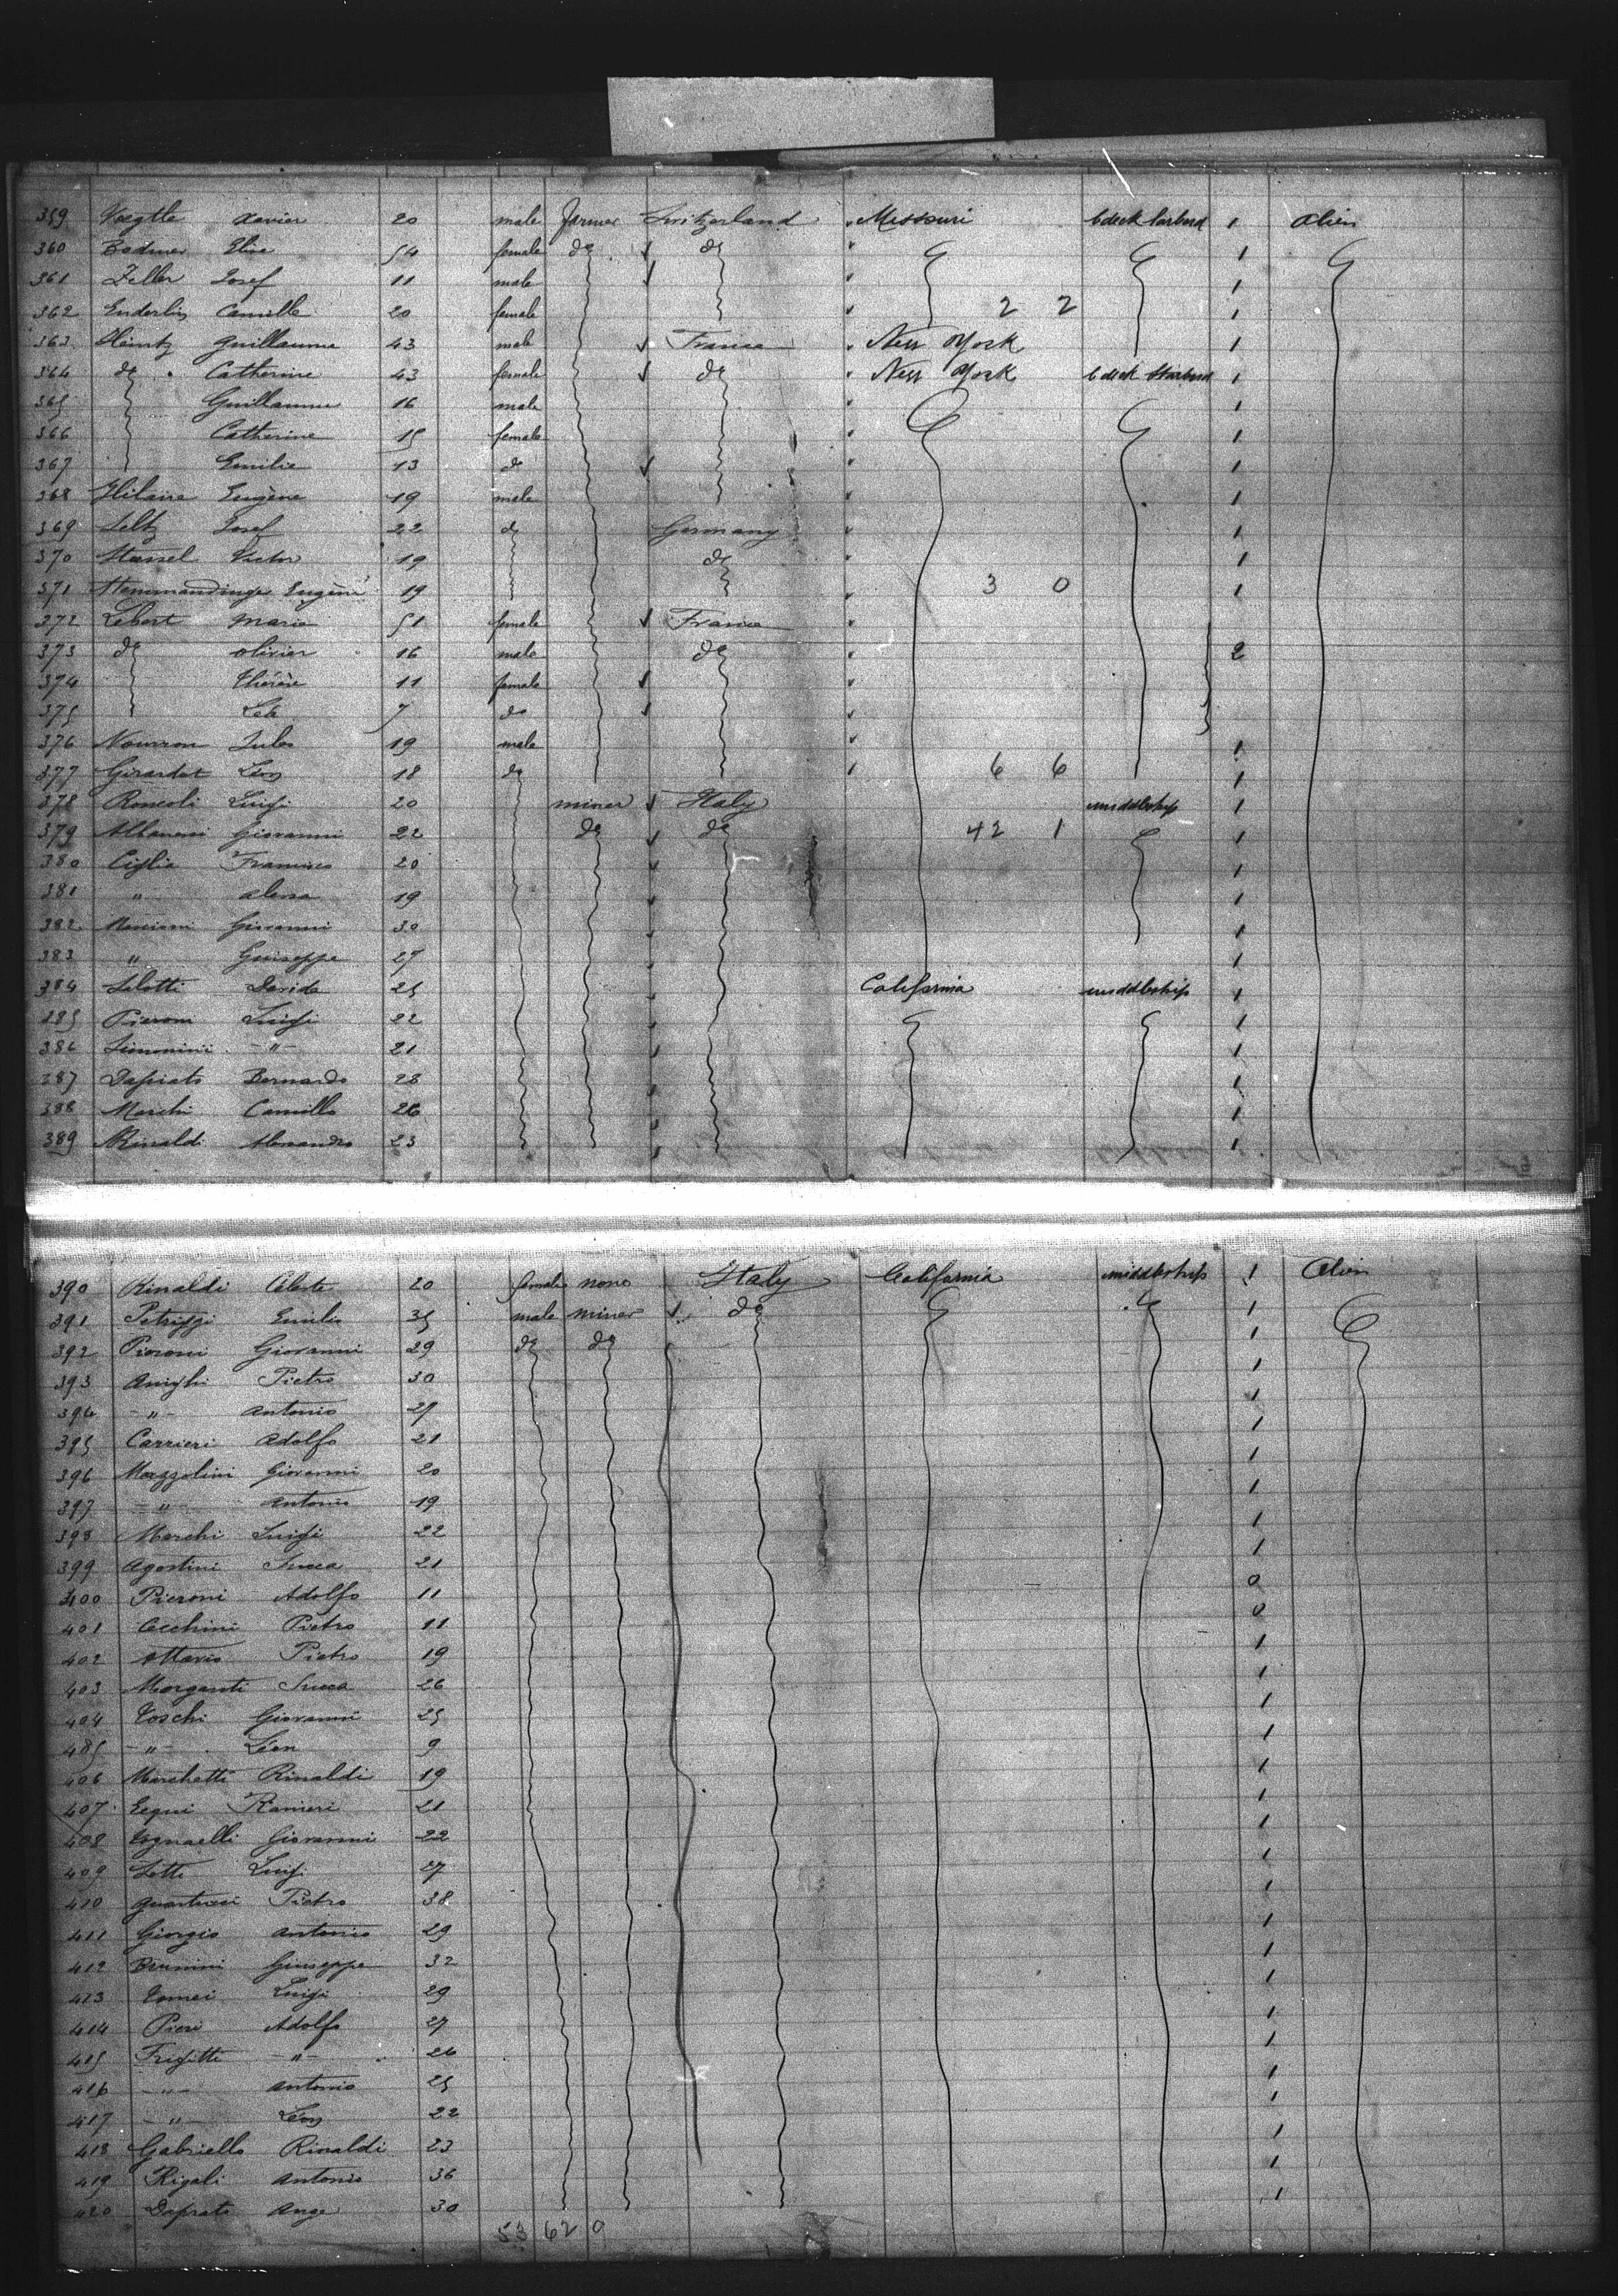 359 Voegtle Xavier 20 male farmer Switzerland Missouri b deck larbord 1 Alien
360 Bodmer Elise 54 female do do 1
361 Zeller Josef 11 male 1
362 Enderlin Camille 20 female 2 2 1
363 Heintz Guillaume 43 male France New York 1
364 do Catherine 43 female do New York b deck Starbord 1
365 Guillaume 16 male 1
366 Catherine 15 female 1
367 Emilie 13 do 1
368 Hilaire Eugène 19 male 1
369 Seltz Josef 22 do Germany 1
370 Victor 19 do 1
371 Eugène 19 3 0 1
372 Lebert Marie 51 female France
373 do Olivier 16 male do 2
374 Thérèse 11 female
375 7 do
376 Jules 19 male 1
377 Girardot Léon 18 do 6 6 1
378 Roncoli Luigi 20 miner Italy middleship 1
379 Giovanni 22 do do 42 1 1
380 Ciglia Francisco 20 1
381 " 19 1
382 Giovanni 30 1
383 " Guiseppe 27 1
384 Davide 25 California middleship 1
385 Pieroni Luigi 22 1
386 Simonini - " - 21 1
387 Bernardo 28 1
388 Marchi Camillo 26 1
389 Rinaldi Alessandro 23 1
390 Rinaldi Celeste 20 female none Italy California middleship 1 Alien
391 Emilio 35 male miner do 1
392 Pieroni Giovanni 29 do do 1
393 Pietro 30 1
394 - " - Antonio 27 1
395 Carrieri Adolfo 21 1
396 Mazzolini Giovanni 20 1
397 - " - Antonio 19 1
398 Marchi Luigi 22 1
399 Agostini 21 1
400 Pieroni Adolfo 11 0
401 Cecchini Pietro 11 0
402 Pietro 19 1
403 Morganti 26 1
404 Toschi Giovanni 25 1
405 - " - Léon 9 1
406 Marchetti Rinaldi 19 1
407 Ranieri 21 1
408 Giovanni 22 1
409 Luigi 27 1
410 Pietro 38 1
411 Giorgio Antonio 29 1
412 Giuseppe 32 1
413 Tomei Luigi 29 1
414 Pieri Adolfo 27 1
415 - " - 26 1
416 - " - Antonio 25 1
417 - " - Léon 22 1
418 Gabriello Rinaldi 23 1
419 Rigali Antonio 36 1
420 Daprato Ange 30 1
53 62 0